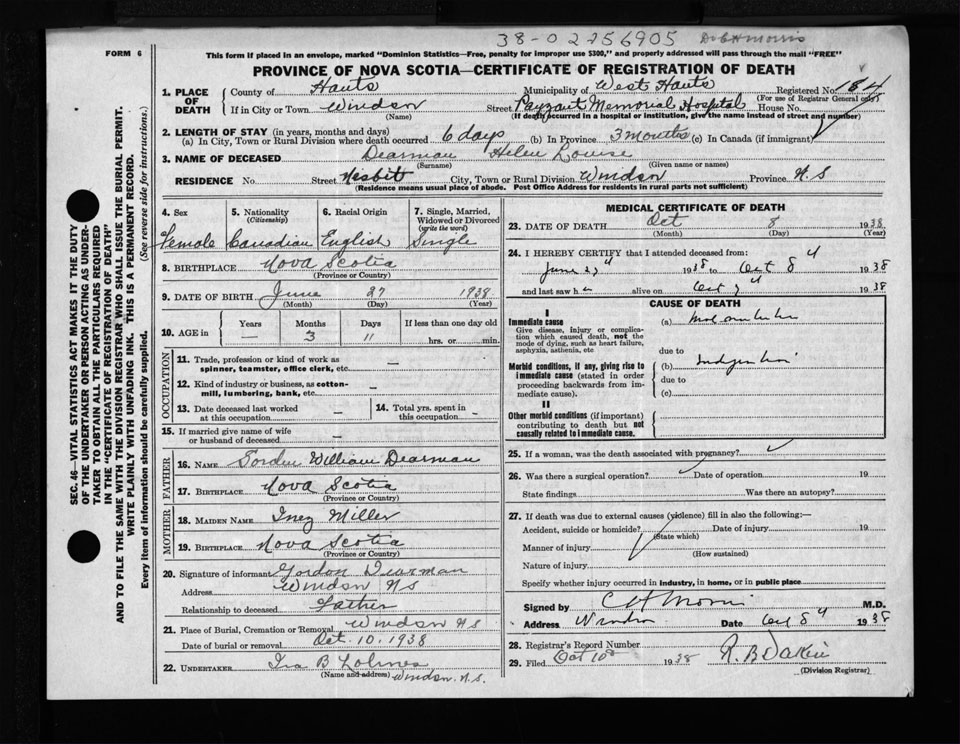 38-02256905 Dr CH Morris
FORM 6
This form if placed in an envelope, marked "Dominion Statistics—Free, penalty for improper use $300," and properly addressed will pass through the mail "FREE"
PROVINCE OF NOVA SCOTIA—CERTIFICATE OF REGISTRATION OF DEATH
1. PLACE OF DEATH County of Hants Municipality of West Hants Registered No. 184
(For use of Registrar General only)
If in City or Town Windsor Street Payzant Memorial Hospital House No.
(Name) (If death occurred in a hospital or institution, give the name instead of street and number)
2. LENGTH OF STAY (in years, months and days)
(a) In City, Town or Rural Division where death occurred 6 days (b) In Province 3 months (c) In Canada (if immigrant)
3. NAME OF DECEASED Dearman Helen Louise
(Surname) (Given name or names)
RESIDENCE No. Street Nesbit City, Town or Rural Division Windsor Province N.S
(Residence means usual place of abode. Post Office Address for residents in rural parts not sufficient)
4. Sex 5. Nationality (Citizenship) 6. Racial Origin 7. Single, Married, Widowed or Divorced (write the word)
Female Canadian English Single
8. BIRTHPLACE Nova Scotia
(Province or Country)
9. DATE OF BIRTH June 27 1938
(Month) (Day) (Year)
10. AGE in Years Months Days If less than one day old
— 3 11 hrs. or min.
OCCUPATION
11. Trade, profession or kind of work as spinner, teamster, office clerk, etc. —
12. Kind of industry or business, as cotton-mill, lumbering, bank, etc. —
13. Date deceased last worked at this occupation — 14. Total yrs. spent in this occupation —
15. If married give name of wife or husband of deceased —
FATHER
16. NAME Gordon William Dearman
17. BIRTHPLACE Nova Scotia
(Province or Country)
MOTHER
18. MAIDEN NAME Inez Miller
19. BIRTHPLACE Nova Scotia
(Province or Country)
20. Signature of informant Gordon Dearman
Address Windsor NS
Relationship to deceased Father
21. Place of Burial, Cremation or Removal Windsor NS
Date of burial or removal Oct. 10, 1938
22. UNDERTAKER Ira B Lohnes
(Name and address) Windsor. N.S.
MEDICAL CERTIFICATE OF DEATH
23. DATE OF DEATH Oct 8 1938
(Month) (Day) (Year)
24. I HEREBY CERTIFY that I attended deceased from:
June 27 1938 to Oct 8 1938
and last saw h alive on Oct 7 1938
CAUSE OF DEATH
I
Immediate cause
Give disease, injury or complication which caused death, not the mode of dying, such as heart failure, asphyxia, asthenia, etc
(a) Malnutrition
due to
Morbid conditions, if any, giving rise to immediate cause (stated in order proceeding backwards from immediate cause).
(b) Indigestion
due to
(c)
II
Other morbid conditions (if important) contributing to death but not causally related to immediate cause.
25. If a woman, was the death associated with pregnancy?
26. Was there a surgical operation? Date of operation 19
State findings Was there an autopsy?
27. If death was due to external causes (violence) fill in also the following:—
Accident, suicide or homicide? Date of injury 19
(State which)
Manner of injury
(How sustained)
Nature of injury
Specify whether injury occurred in industry, in home, or in public place
Signed by CH Morris M.D.
Address Windsor Date Oct 8 1938
28. Registrar's Record Number
29. Filed Oct 10 1938 R. B Dakin
(Division Registrar)
SEC. 46—VITAL STATISTICS ACT MAKES IT THE DUTY
OF THE UNDERTAKER OR PERSON ACTING AS UNDER-
TAKER TO OBTAIN ALL THE PARTICULARS REQUIRED
IN THE "CERTIFICATE OF REGISTRATION OF DEATH"
AND TO FILE THE SAME WITH THE DIVISION REGISTRAR WHO SHALL ISSUE THE BURIAL PERMIT.
WRITE PLAINLY WITH UNFADING INK. THIS IS A PERMANENT RECORD.
Every item of information should be carefully supplied. (See reverse side for instructions.)